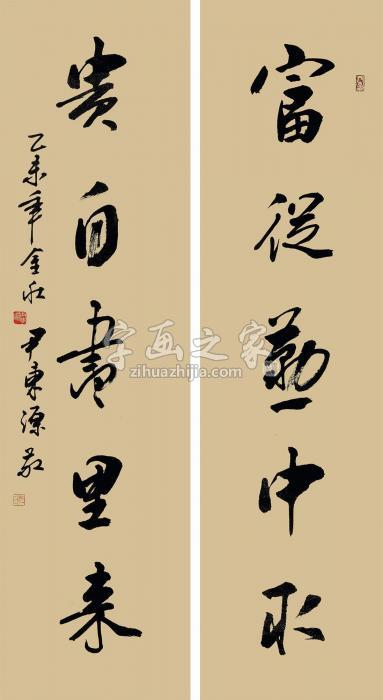 富從勤中取
貴自書里来
乙未年金秋
尹東源
字画之家
zihuazhijia.com